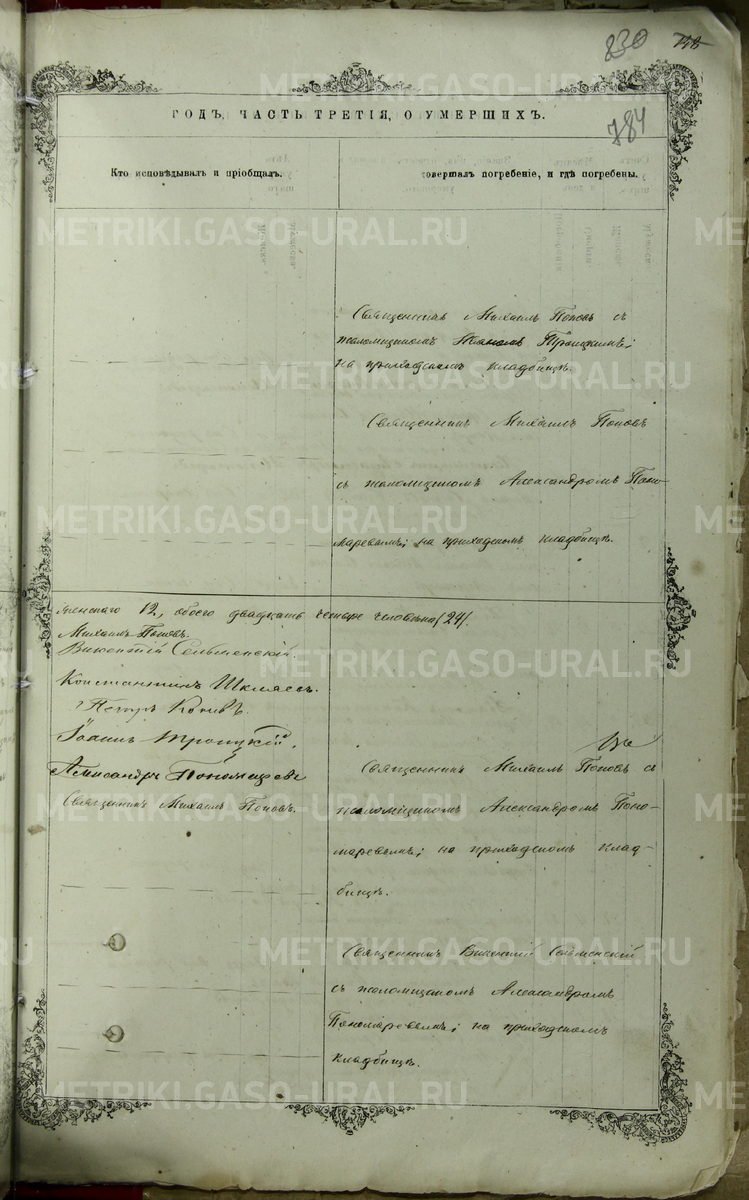 830 748
784
ГОДЪ, ЧАСТЬ ТРЕТІЯ, О УМЕРШИХЪ.
Кто исповѣдывалъ и пріобщалъ.
совершалъ погребеніе, и гдѣ погребены.
Священникъ Михаилъ Поповъ съ
псаломщикомъ Іоанномъ Троицкимъ;
на приходскомъ кладбищѣ.
Священникъ Михаилъ Поповъ
съ псаломщикомъ Александромъ Поно-
маревымъ; на приходскомъ кладбищѣ.
женскаго 12, обоего двадцать четыре человѣка /24/.
Михаилъ Поповъ.
Викентій Сельменскій.
Константинъ Шкляевъ.
Петръ
Іоаннъ Троицкій.
Александръ Пономаревъ
Священникъ Михаилъ Поповъ.
Священникъ Михаилъ Поповъ съ
псаломщикомъ Александромъ Поно-
маревымъ; на приходскомъ клад-
бищѣ.
Священникъ Викентій Сельменскій
съ псаломщикомъ Александромъ
Пономаревымъ; на приходскомъ
кладбищѣ.
METRIKI.GASO-URAL.RU